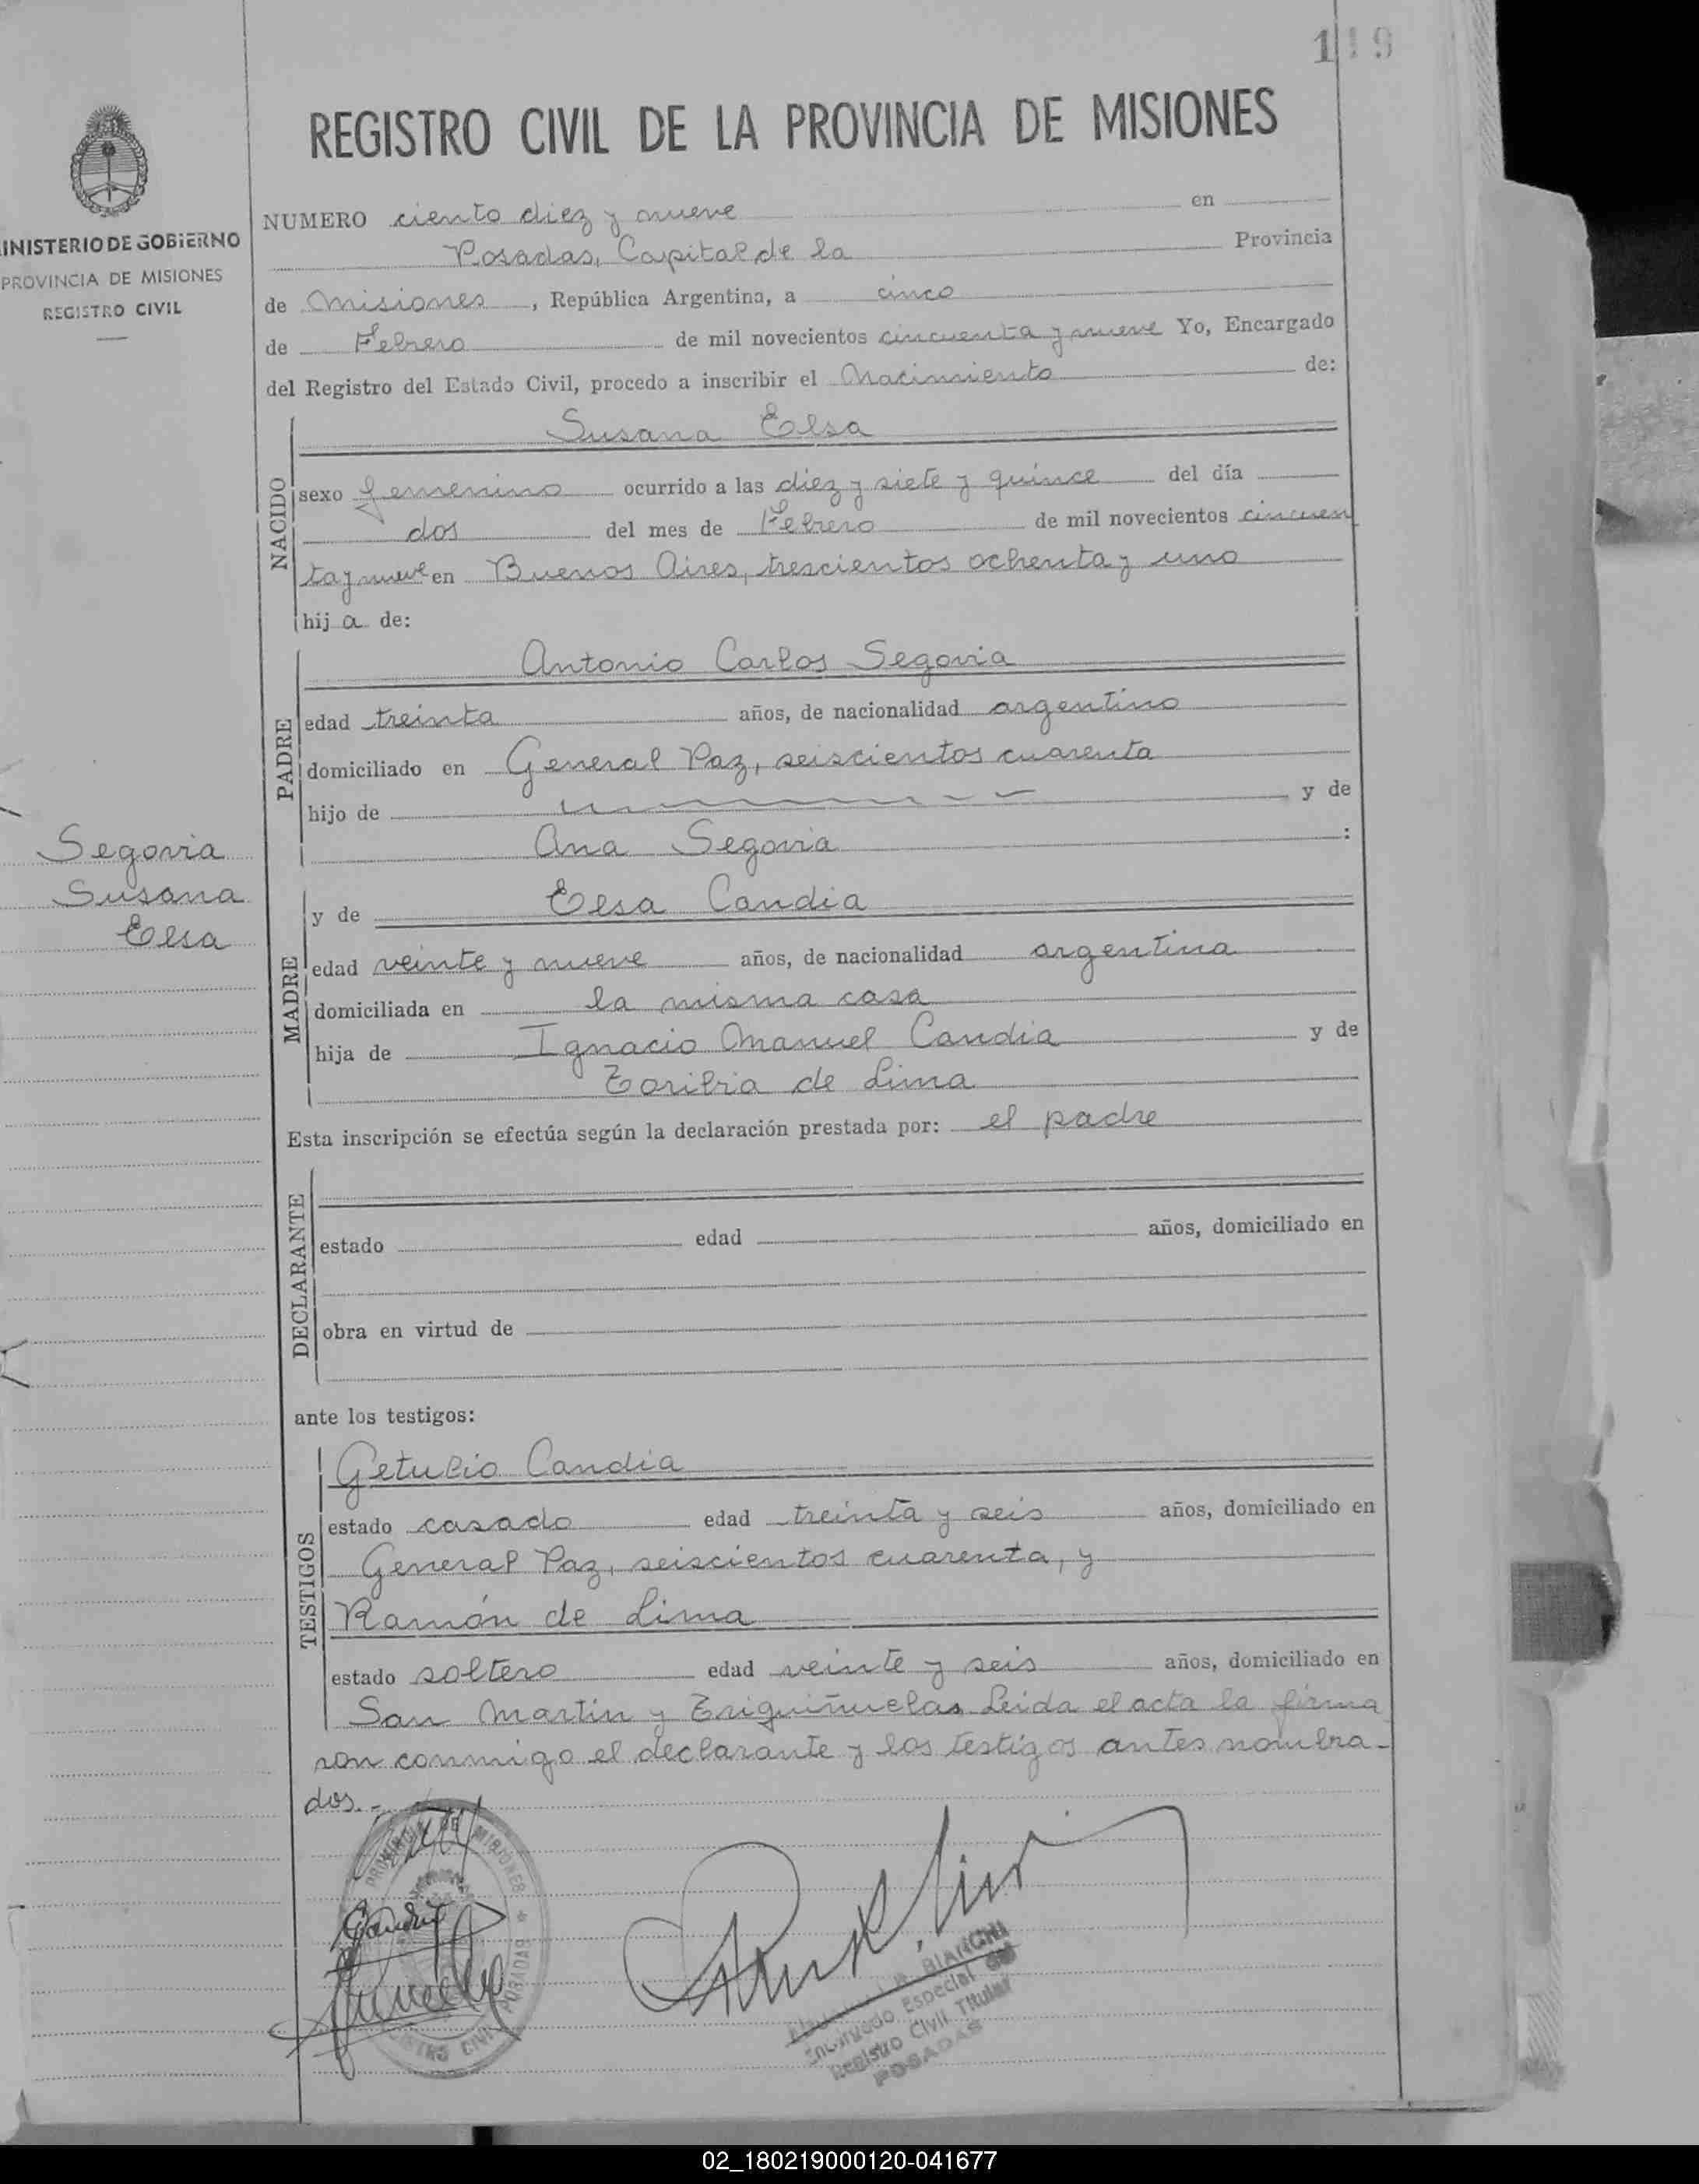 119
REGISTRO CIVIL DE LA PROVINCIA DE MISIONES
INISTERIO DE GOBIERNO
PROVINCIA DE MISIONES
REGISTRO CIVIL
NUMERO ciento diez y nueve en
Posadas, Capital de la Provincia
de Misiones, República Argentina, a cinco
de Febrero de mil novecientos cincuenta y nueve Yo, Encargado
del Registro del Estado Civil, procedo a inscribir el Nacimiento de:
NACIDO
Susana Elsa
sexo femenino ocurrido a las diez y siete y quince del día
dos del mes de Febrero de mil novecientos cincuen
ta y nueve en Buenos Aires, trescientos ochenta y uno
hij a de:
PADRE
Antonio Carlos Segovia
edad treinta años, de nacionalidad argentino
domiciliado en General Paz, seiscientos cuarenta
hijo de y de
Ana Segovia :
Segovia
Susana
Elsa
MADRE
y de Elsa Candia
edad veinte y nueve años, de nacionalidad argentina
domiciliada en la misma casa
hija de Ignacio Manuel Candia y de
Toribia de Lima
Esta inscripción se efectúa según la declaración prestada por: el padre
DECLARANTE
estado edad años, domiciliado en
obra en virtud de
ante los testigos:
TESTIGOS
Getulio Candia
estado casado edad treinta y seis años, domiciliado en
General Paz, seiscientos cuarenta, y
Ramón de Lima
estado soltero edad veinte y seis años, domiciliado en
San Martin y Trigüiñuelas Leida el acta la firma
ron conmigo el declarante y los testigos antes nombra-
dos.-
PROVINCIA DE MISIONES
POSADAS
CIVIL
BIANCHI
Encargado Especial del
Registro Civil Titular
POSADAS
02_180219000120-041677